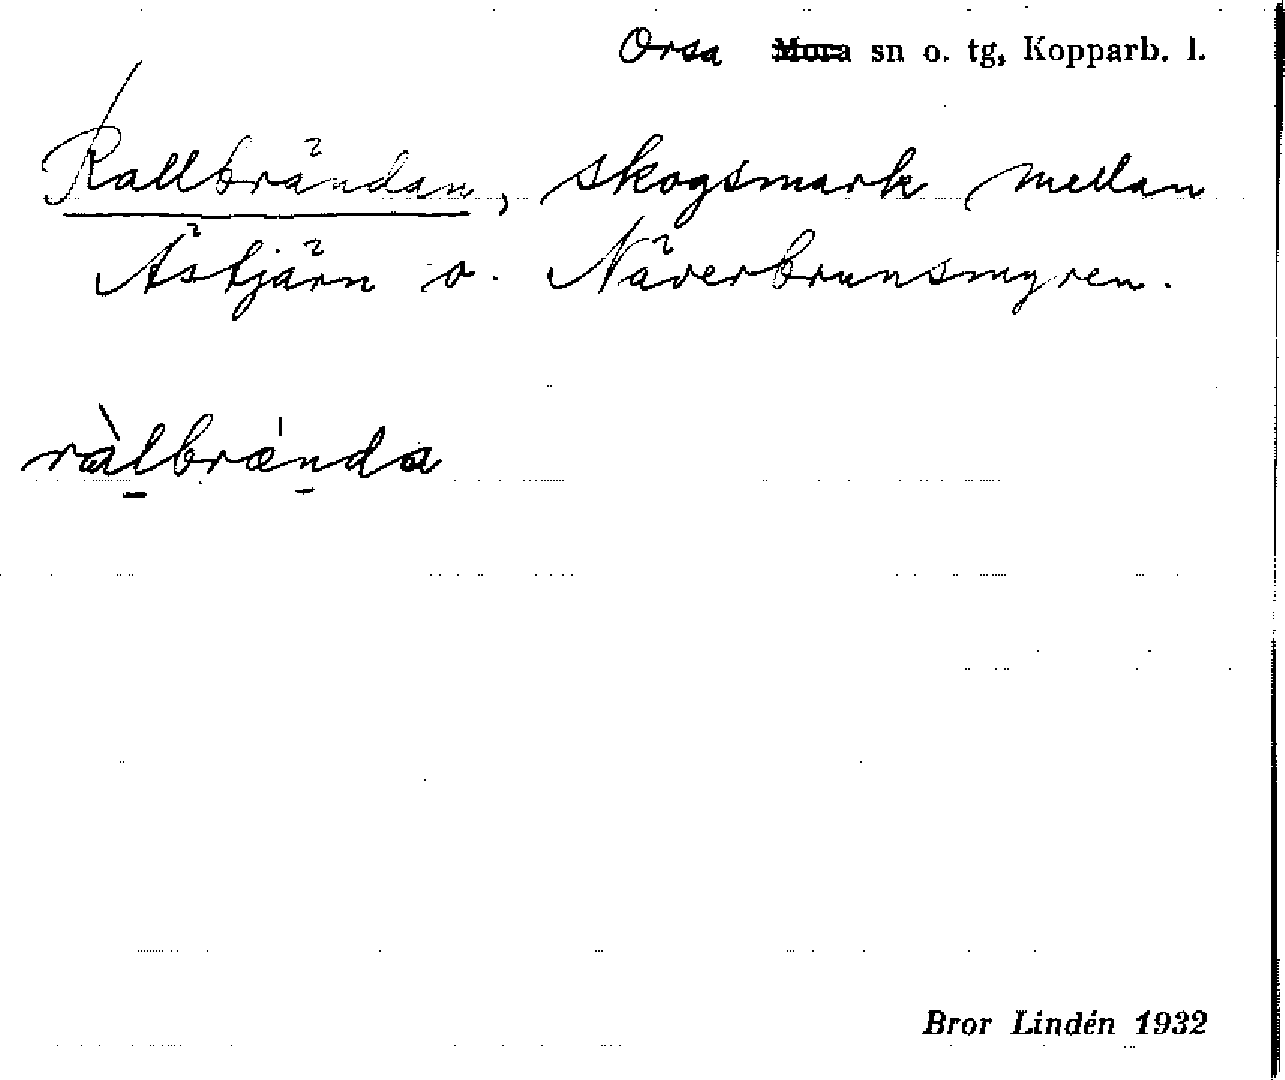 Orsa Mora sn o. tg, Kopparb. l.
Rallbrändan, skogsmark mellan
Ästjärn o. Näverbrunsmyren.
ràlbrænda
Bror Lindén 1932